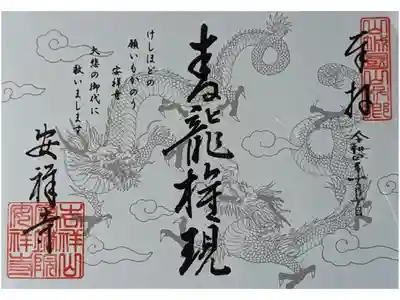 山城国山科郷
奉拝
令和 年 月 日
青龍権現
けしほどの
願いもかのう
安祥寺
の御代に
救いまします
安祥寺
吉祥山
安祥寺